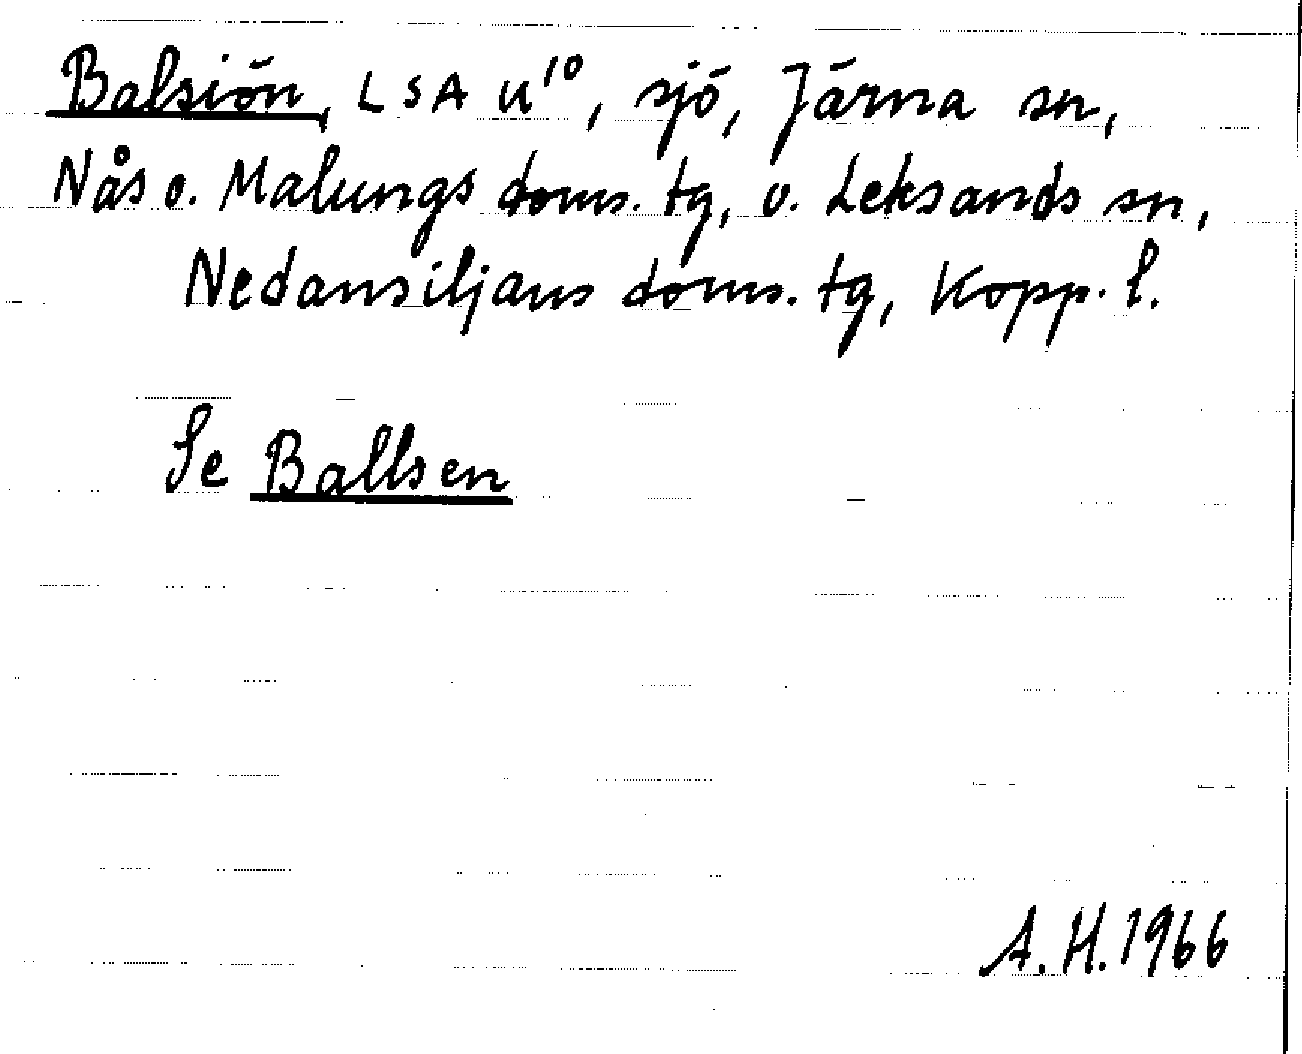 Balsiön, LSA U¹⁰, sjö, Järna sn,
Nås o. Malungs doms. tg, o. Leksands sn,
Nedansiljans doms. tg, Kopp. l.
Se Ballsen
A. H. 1966